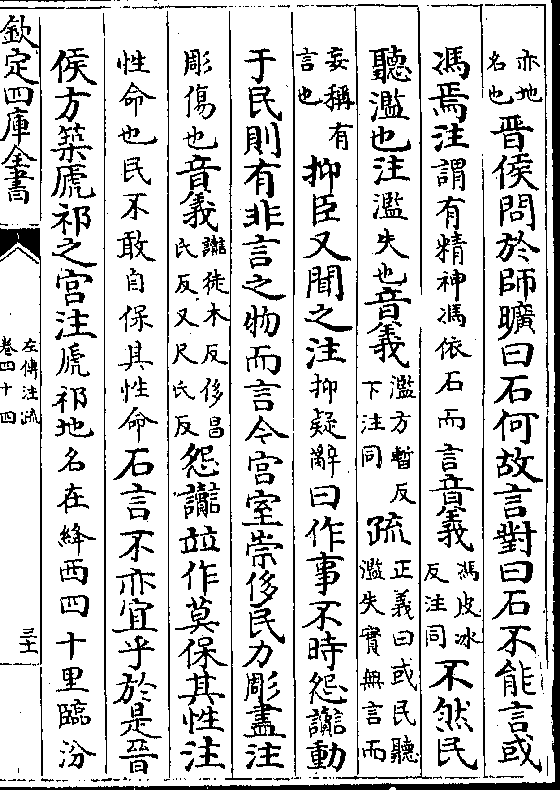 亦地
名也
晋侯問於師曠曰石何故言對曰石不能言或
馮焉注謂有精神馮依石而言音義
馮皮冰
反注同
不然民
聽濫也注濫失也音義
濫方暫反
下注同
疏
正義曰或民聽
濫失實無言而
妄稱有
言也
抑臣又聞之注抑疑辭曰作事不時怨讟動
于民則有非言之物而言今宮室崇侈民力彫盡注
彫傷也音義
讟徒木反侈昌
氏反又尺氏反
怨讟並作莫保其性注
性命也民不敢自保其性命石言不亦宜乎於是晋
侯方築虒祁之宮注虒祁地名在絳西四十里臨汾
欽定四庫全書
左傳注疏
卷四十四
三十